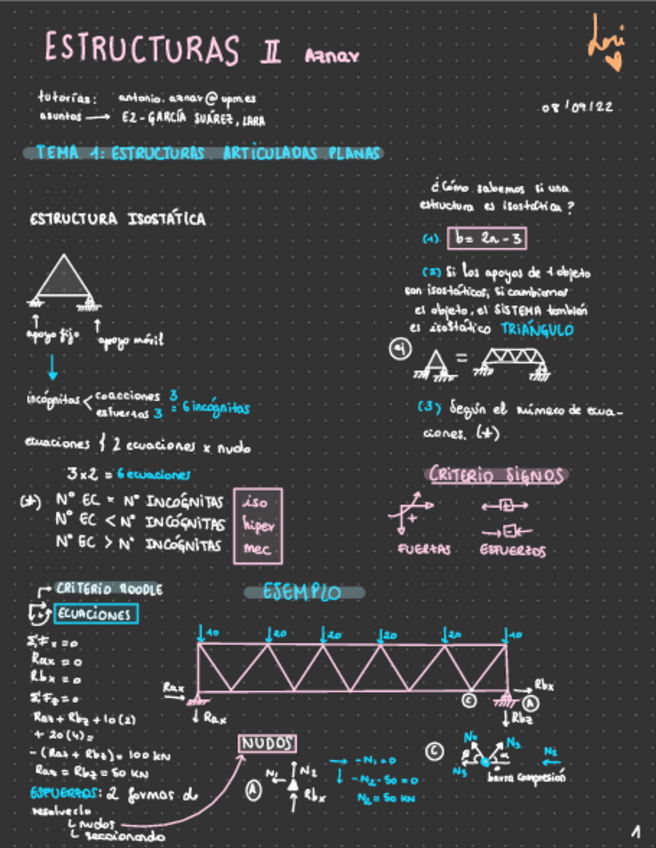 ESTRUCTURAS II Aznar
Lari
tutorías: antonio.aznar@upm.es
asuntos → E2-GARCÍA SUÁREZ, LARA
08/09/22
TEMA 1: ESTRUCTURAS ARTICULADAS PLANAS
ESTRUCTURA ISOSTÁTICA
apoyo fijo
apoyo móvil
incógnitas < coacciones 3
esfuerzos 3 = 6 incógnitas
ecuaciones { 2 ecuaciones x nudo
3x2 = 6 ecuaciones
(*) Nº EC = Nº INCÓGNITAS iso
Nº EC < Nº INCÓGNITAS hiper
Nº EC > Nº INCÓGNITAS mec
¿Cómo sabemos si una
estructura es isostática?
(1) b = 2n - 3
(2) Si los apoyos de 1 objeto
son isostáticos, si cambiamos
el objeto, el SISTEMA también
es isostático TRIÁNGULO
ej
=
(3) Según el número de ecua-
ciones. (*)
CRITERIO SIGNOS
+
+
-
FUERZAS ESFUERZOS
CRITERIO MOODLE
ECUACIONES
ΣFx = 0
Rax = 0
Rbx = 0
ΣFz = 0
Raz + Rbz + 10(2)
+ 20(4) =
-(Raz + Rbz) = 100 kN
Raz = Rbz = 50 kN
ESFUERZOS: 2 formas de
resolverlo
nudos
seccionando
EJEMPLO
10 20 20 20 20 10
Rax
Rax
C
A
Rbx
Rbz
NUDOS
A
N1 N2
Rbx
→ -N1 = 0
↓ -N2 - 50 = 0
N2 = 50 kN
C
α
barra compresión
1